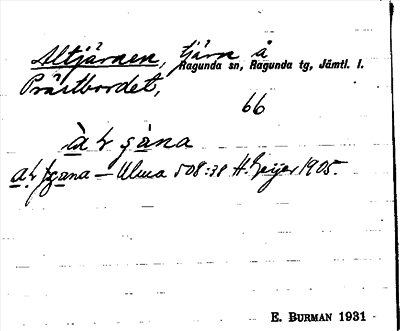 Altjärnen, tjärn å
Ragunda sn, Ragunda tg, Jämtl. l.
Prästbordet,
66
a — Ulma 508:38 H. Geijer 1905.
E. BURMAN 1931